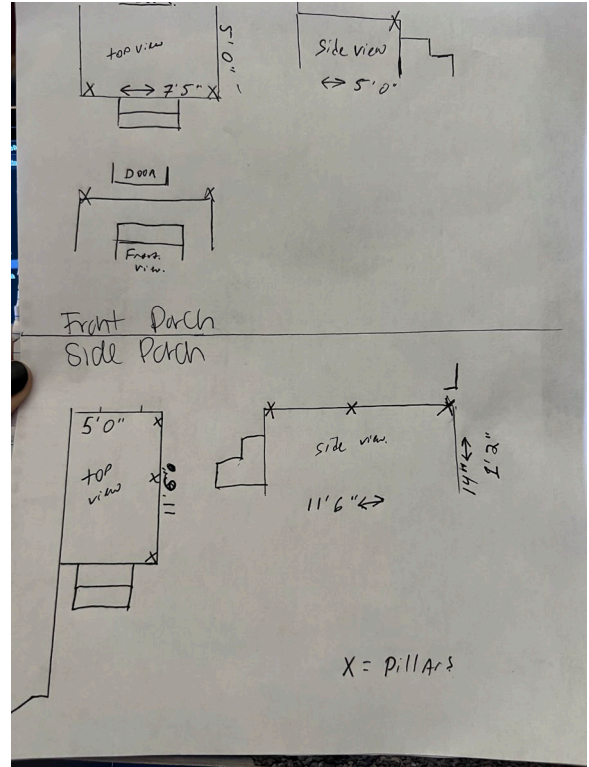 top view
5'0"
7'5"
side view
5'0"
DOOR
Front
view.
Front Porch
Side Porch
5'0"
top
view
11'6"
side view.
11'6"
14"
1'2"
X = PillArs